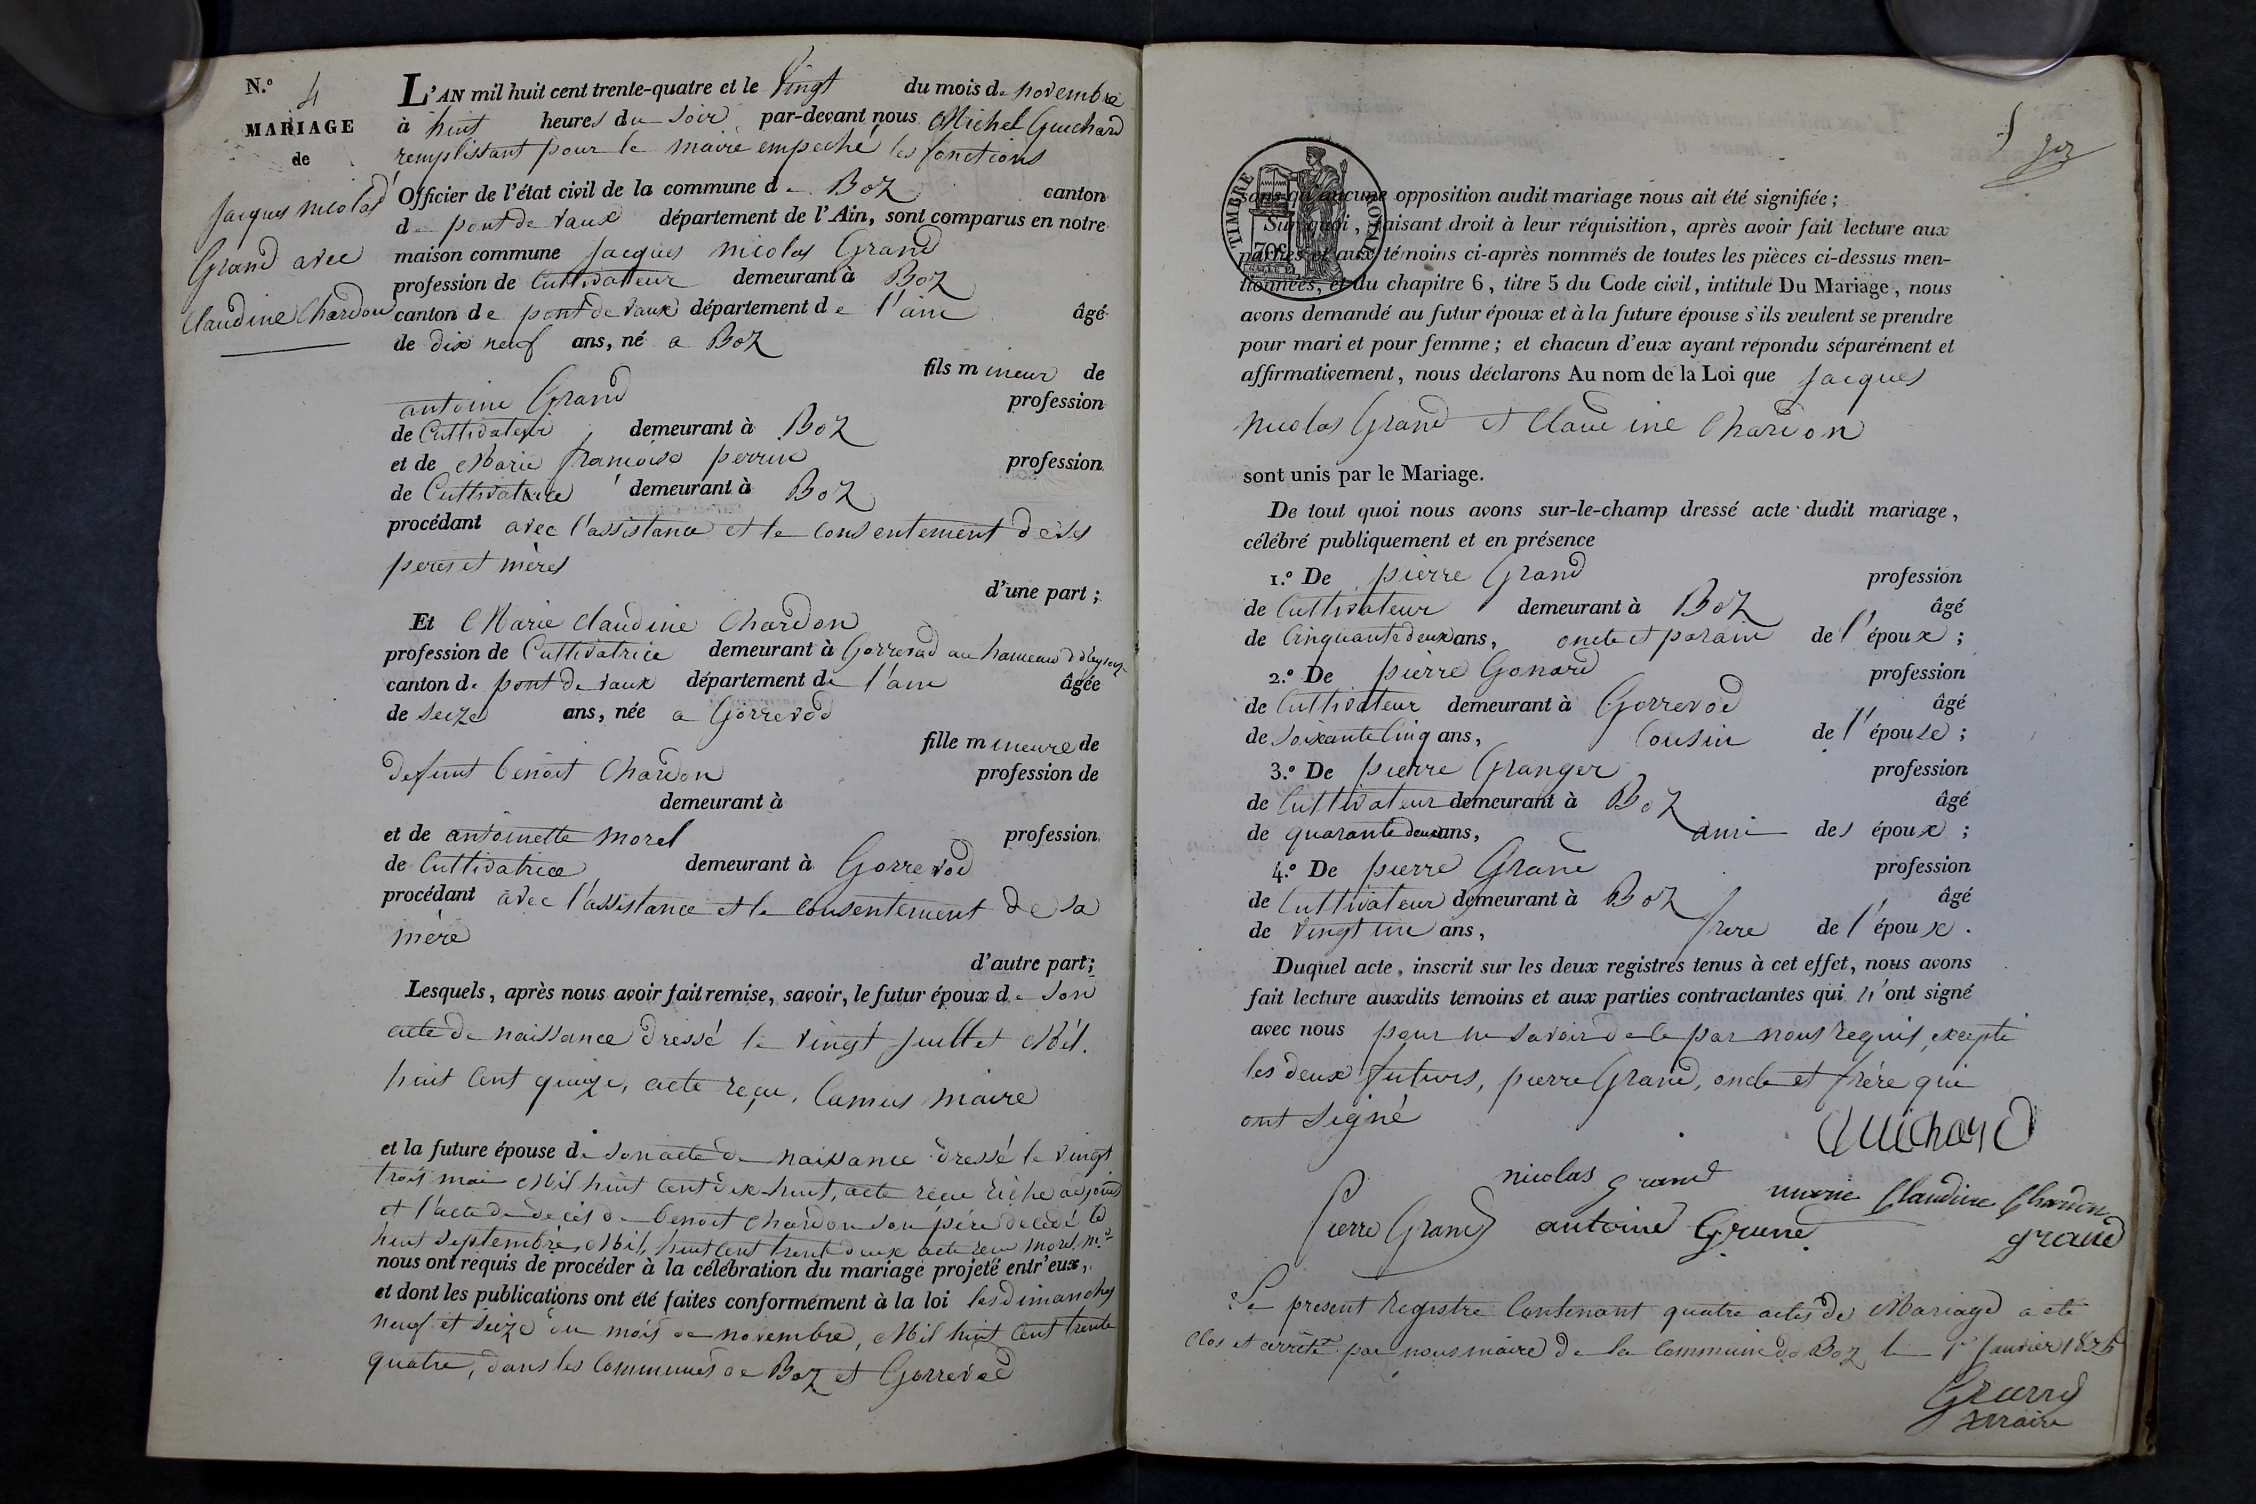 N.º 4
MARIAGE
de
Jacques Nicolas
Grand avec
Claudine Chardon
L'AN mil huit cent trente-quatre et le Vingt du mois de novembre
à huit heures du soir par-devant nous Michel Guichard
remplissant pour le maire empeché les fonctions
Officier de l'état civil de la commune de Boz canton
de pont de vaux département de l'Ain, sont comparus en notre
maison commune Jacques nicolas Grand
profession de Cultivateur demeurant à Boz
canton de pont de vaux département de l'ain âgé
de dix neuf ans, né a Boz
fils mineur de
antoine Grand profession
de Cultivateur demeurant à Boz
et de Marie françoise perrin profession
de Cultivatrice demeurant à Boz
procédant avec l'assistance et le consentement de ses
peres et mères
d'une part ;
Et Marie Claudine Chardon
profession de Cultivatrice demeurant à Gorrevod au hameau
canton de pont de vaux département de l'ain âgée
de seize ans, née a Gorrevod
fille mineure de
defunt benoit Chardon profession de
demeurant à
et de antoinette morel profession
de Cultivatrice demeurant à Gorrevod
procédant avec l'assistance et le consentement de sa
mère
d'autre part ;
Lesquels, après nous avoir fait remise, savoir, le futur époux de son
acte de naissance dressé le vingt juillet Mil
huit Cent quinze, acte reçu, Camus maire
et la future épouse de son acte de naissance dressé le vingt
trois mai Mil huit Cent dix-huit, acte reçu Riche adjoint
et l'acte de décés de benoit Chardon son père décédé le
huit septembre, Mil huit Cent trente deux acte reçu morel m.re
nous ont requis de procéder à la célébration du mariage projeté entr'eux,
et dont les publications ont été faites conformément à la loi les dimanches
neuf et seize du mois de novembre, Mil huit Cent trente
quatre, dans les Communes de Boz et Gorrevod
TIMBRE ROYAL
70c
sans qu'aucune opposition audit mariage nous ait été signifiée ;
Sur quoi, faisant droit à leur réquisition, après avoir fait lecture aux
parties et aux témoins ci-après nommés de toutes les pièces ci-dessus men-
tionnées, et du chapitre 6, titre 5 du Code civil, intitulé Du Mariage, nous
avons demandé au futur époux et à la future épouse s'ils veulent se prendre
pour mari et pour femme ; et chacun d'eux ayant répondu séparément et
affirmativement, nous déclarons Au nom de la Loi que Jacques
Nicolas Grand et Claudine Chardon
sont unis par le Mariage.
De tout quoi nous avons sur-le-champ dressé acte dudit mariage,
célébré publiquement et en présence
1.º De pierre Grand profession
de Cultivateur demeurant à Boz âgé
de Cinquante deux ans, oncle et parain de l'époux ;
2.º De pierre Gonard profession
de Cultivateur demeurant à Gorrevod âgé
de soixante Cinq ans, Cousin de l'épouse ;
3.º De pierre Granger profession
de Cultivateur demeurant à Boz âgé
de quarante deux ans, ami des époux ;
4.º De pierre Grand profession
de Cultivateur demeurant à Boz âgé
de vingt un ans, frere de l'époux.
Duquel acte, inscrit sur les deux registres tenus à cet effet, nous avons
fait lecture auxdits témoins et aux parties contractantes qui n'ont signé
avec nous pour ne savoir de ce par nous requis, excepté
les deux futurs, pierre Grand, oncle et frère qui
ont signé
Guichard
nicolas grand
marie Claudine Chardon
Pierre Grand
antoine Grand
grand
Le present Registre Contenant quatre actes de Mariage a été
Clos et arrêté par nous maire de la Commune de Boz le 1er Janvier 1835
maire